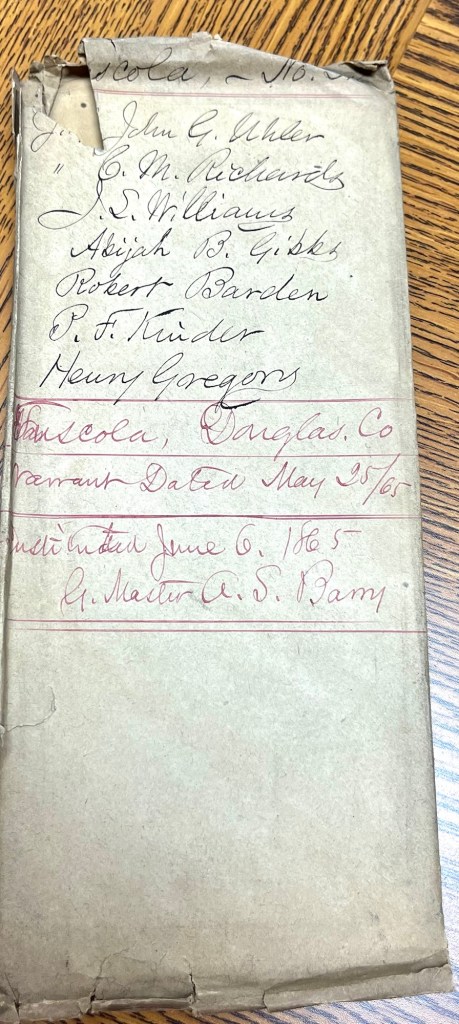 scola, - No.
John G. Uhler
" C. M. Richards
J. L. Williams
Abijah B. Gibbs
Robert Barden
P. F. Kinder
Henry Gregory
Tuscola, Douglas. Co
Warrant Dated May 25/65
Instituted June 6. 1865
G. Master A. S. Barry